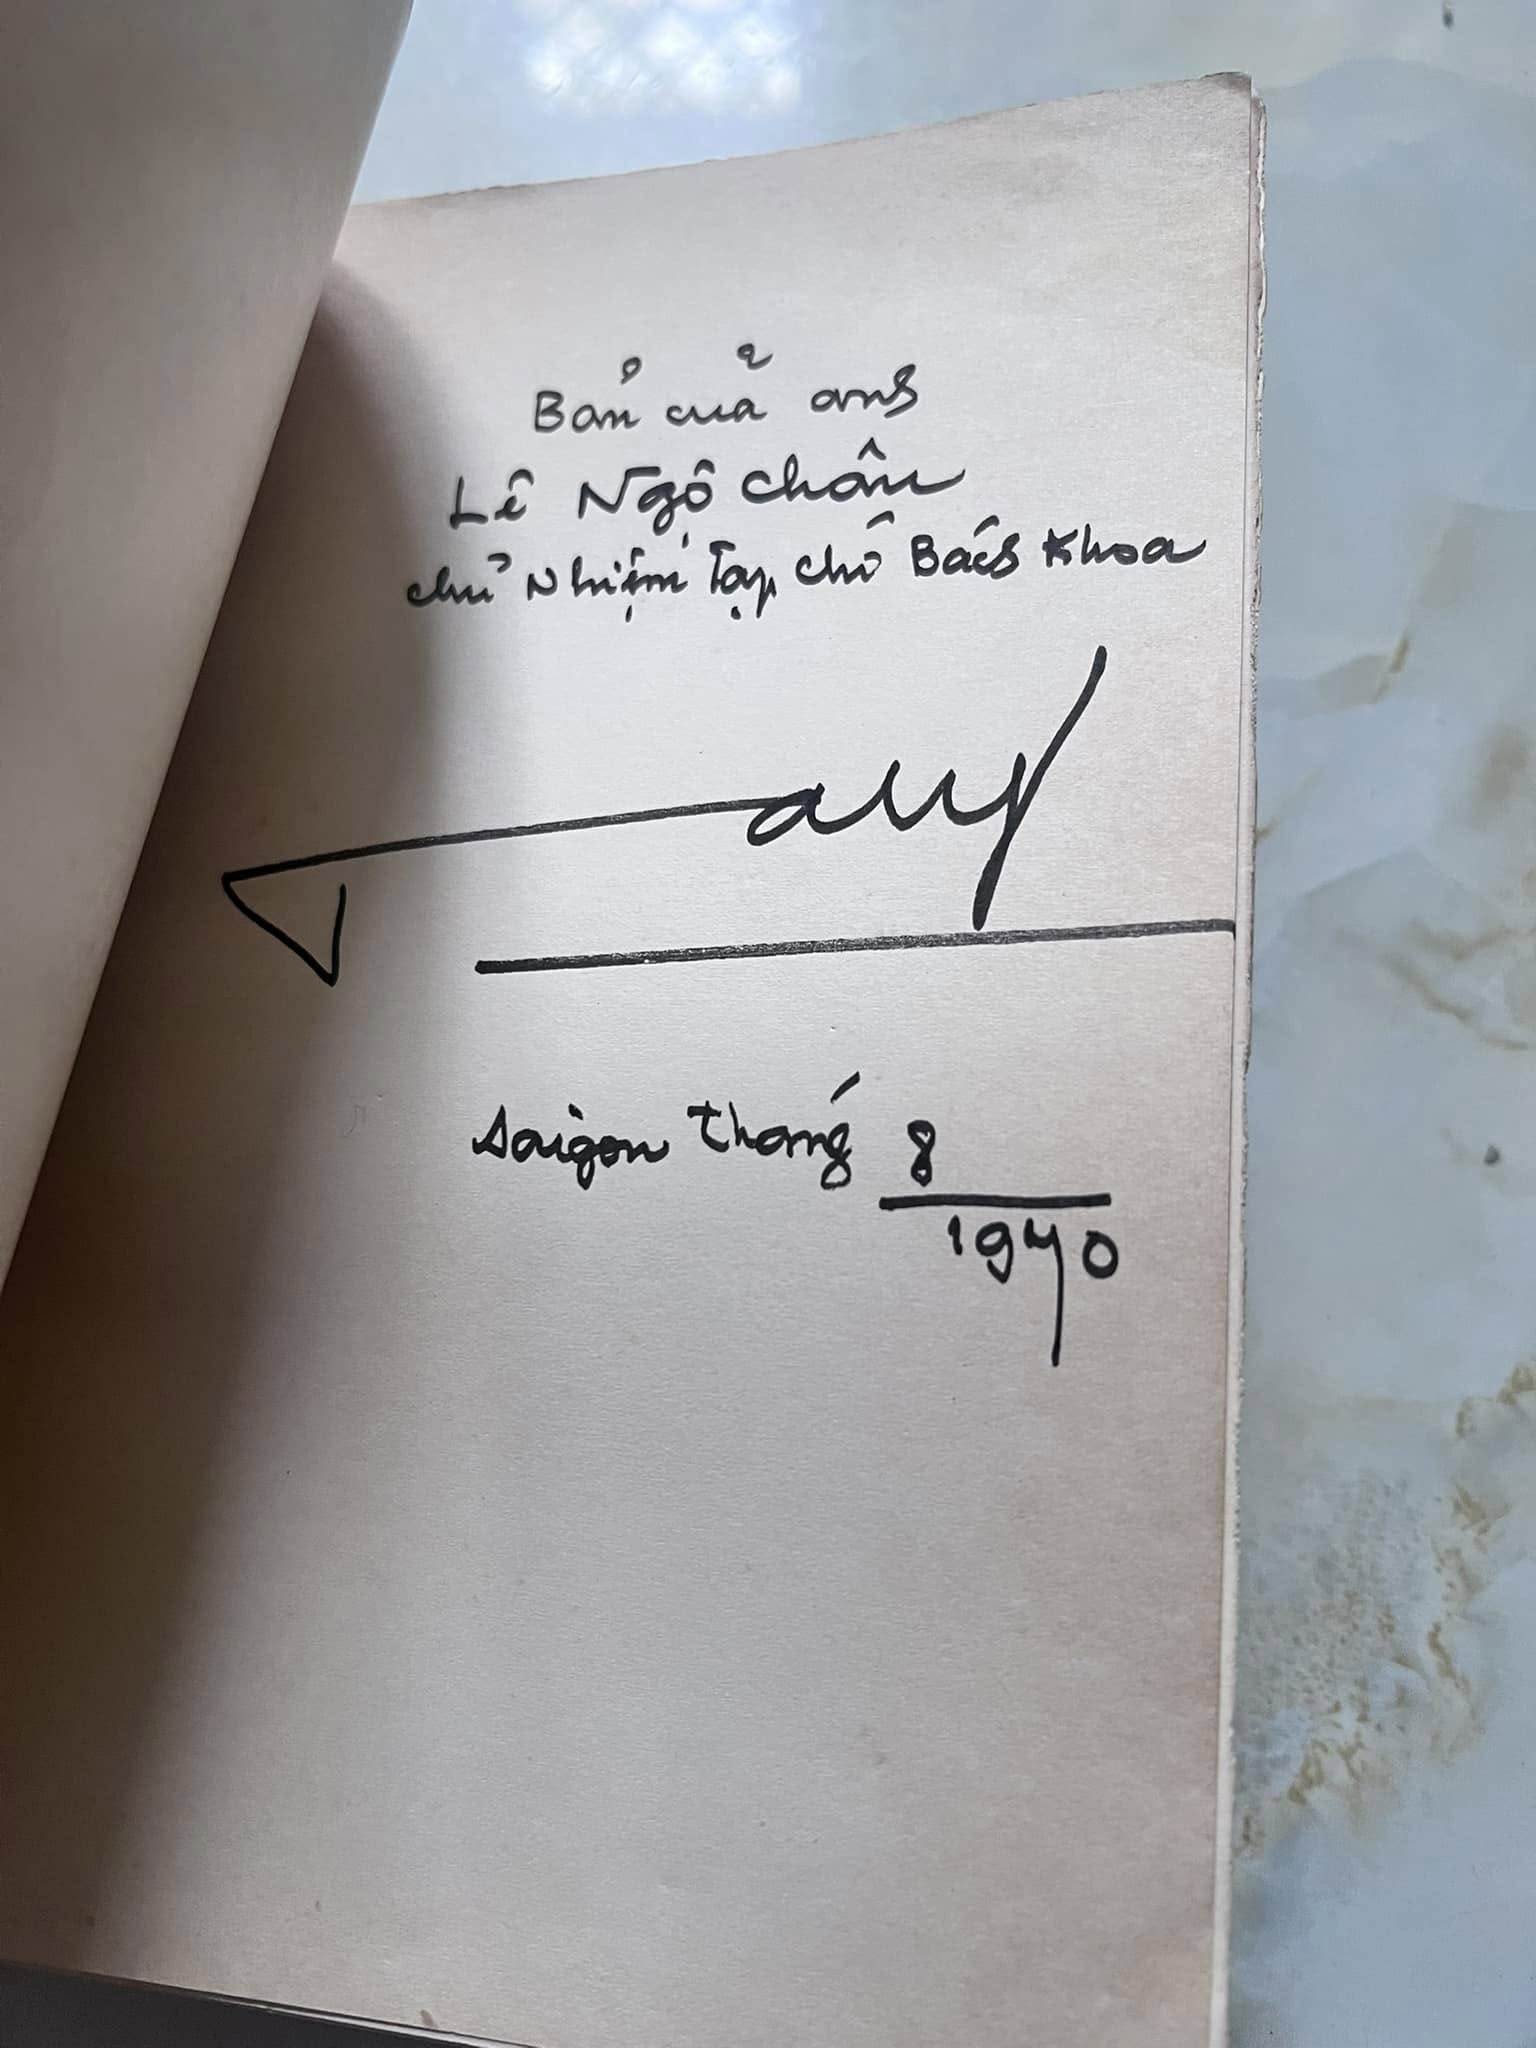 Bản của anh
Lê Ngộ Châu
chủ Nhiệm Tạp chí Bách Khoa
Saigon tháng 8
1970